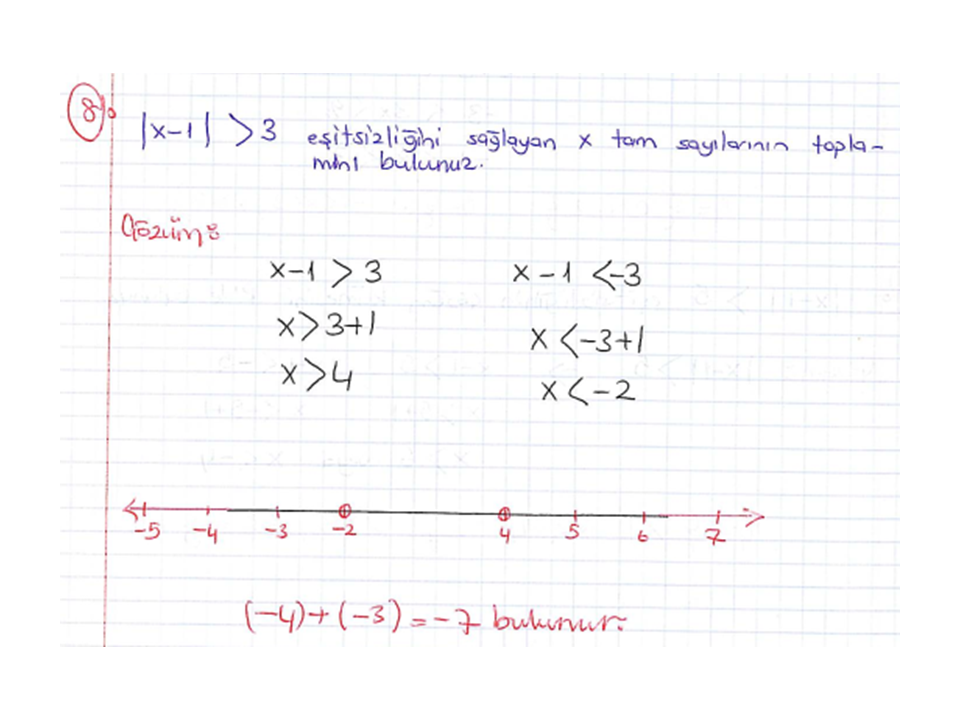 8.
|x-1| > 3 eşitsizliğini sağlayan x tam sayılarının topla-
mını bulunuz.
Çözüm:
x-1 > 3 x - 1 < -3
x > 3+1 x < -3+1
x > 4 x < -2
-5 -4 -3 -2 4 5 6 7
(-4) + (-3) = -7 bulunur.